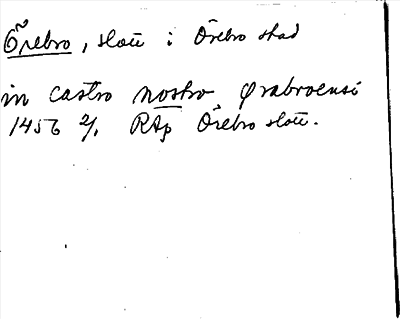 Örebro, slott i Örebro stad
in castro nostro Ørabroensi
1456 2/1 RAp Örebro slott.